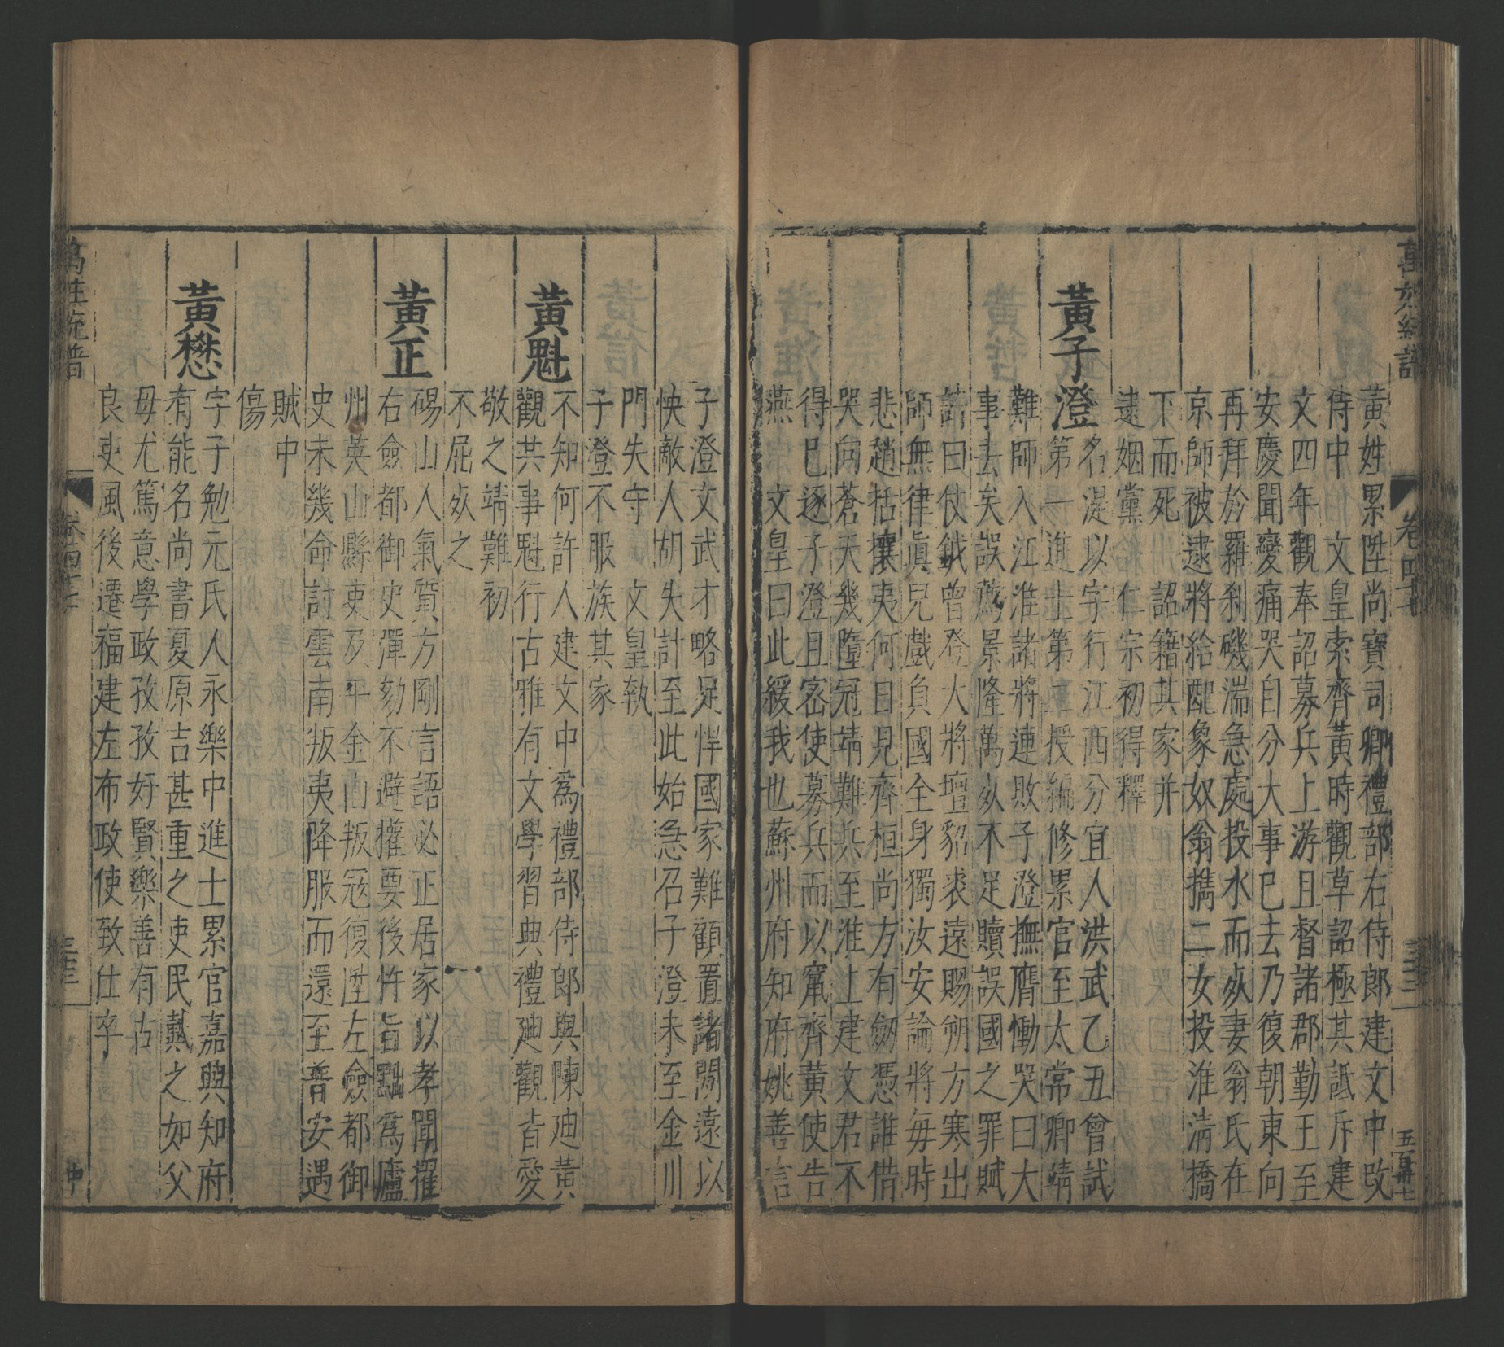 萬姓統譜
卷四十七
五百卅七
黃姓累陞尚寶司卿禮部右侍郎建文中改
侍中 文皇索齊黃時觀草詔極其詆斥建
文四年觀奉詔募兵上游且督諸郡勤王至
安慶聞變痛哭自分大事已去乃復朝東向
再拜於羅刹磯湍急處投水而死妻翁氏在
京師被逮將給配象奴翁攜二女投淮淸橋
下而死 詔籍其家并
逮姻黨 仁宗初得釋
黃子澄
名湜以字行江西分宜人洪武乙丑會試
第一進士第 授編修累官至太常卿靖
難師入江淮諸將連敗子澄撫膺慟哭曰大
事去矣誤薦景隆萬死不足贖誤國之罪賦
詩曰仗鉞曾登大將壇貂裘遠賜朔方寒出
師無律眞兒戲負國全身獨汝安論將每時
悲趙括攘夷何日見齊桓尚方有劒憑誰借
哭向蒼天幾墮冠靖難兵至淮上建文君不
得已逐子澄且密使募兵而以竄齊黃使告
燕 文皇曰此緩我也蘇州府知府姚善言
子澄文武才略足悍國家難顧置諸閒遠以
快敵人胡失計至此始急召子澄未至金川
門失守 文皇執
子澄不服族其家
黃魁
不知何許人建文中爲禮部侍郎與陳迪黃
觀共事魁行古雅有文學習典禮迪觀皆愛
敬之靖難初
不屈死之
黃正
碭山人氣質方剛言語必正居家以孝聞擢
右僉都御史彈劾不避權要後忤旨黜爲廬
州英山縣吏及平金山叛冦復陞左僉都御
史未幾命討雲南叛夷降服而還至普安遇
賊中
傷
黃懋
字子勉元氏人永樂中進士累官嘉興知府
有能名尚書夏原吉甚重之吏民戴之如父
母尤篤意學政孜孜好賢樂善有古
良吏風後遷福建左布政使致仕卒
萬姓統譜
卷四十七